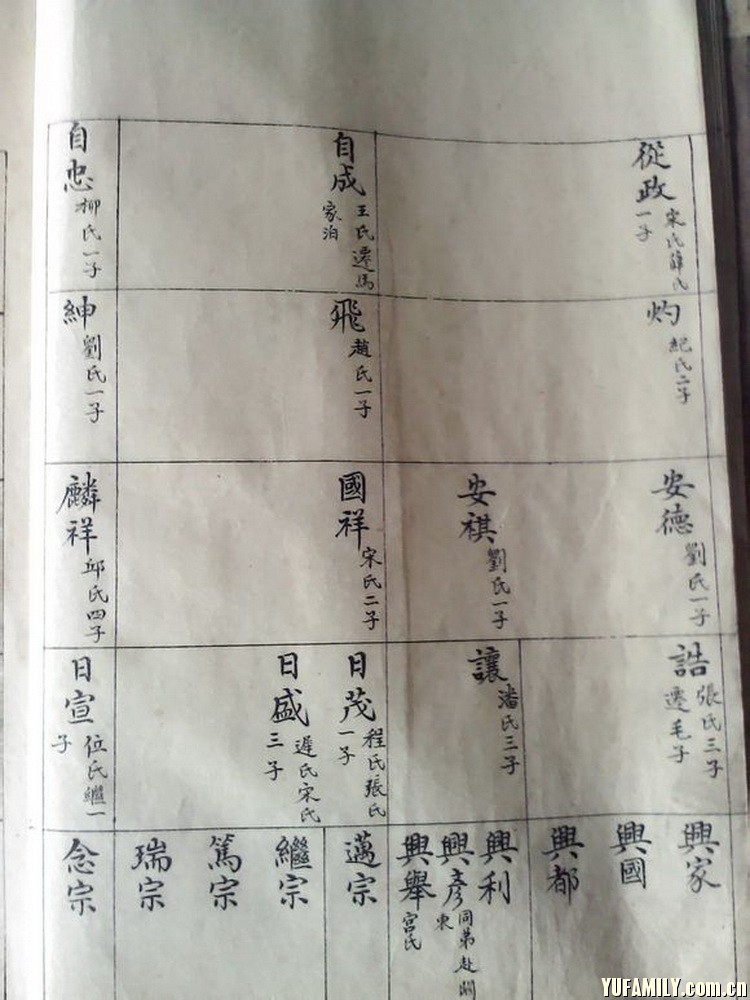 從政 宋氏薛氏
一子
自成 王氏遷馬
家泊
自忠 柳氏一子
灼 紀氏二子
飛 趙氏一子
紳 劉氏一子
安德 劉氏一子
安祺 劉氏一子
國祥 宋氏二子
麟祥 邱氏四子
誥 張氏三子
遷毛子
讓 潘氏三子
日茂 程氏張氏
一子
日盛 遲氏宋氏
三子
日宣 位氏繼一
子
興家
興國
興都
興利
興彥 同弟赴關
東
興舉 宮氏
邁宗
繼宗
篤宗
瑞宗
念宗
YUFAMILY.com.cn